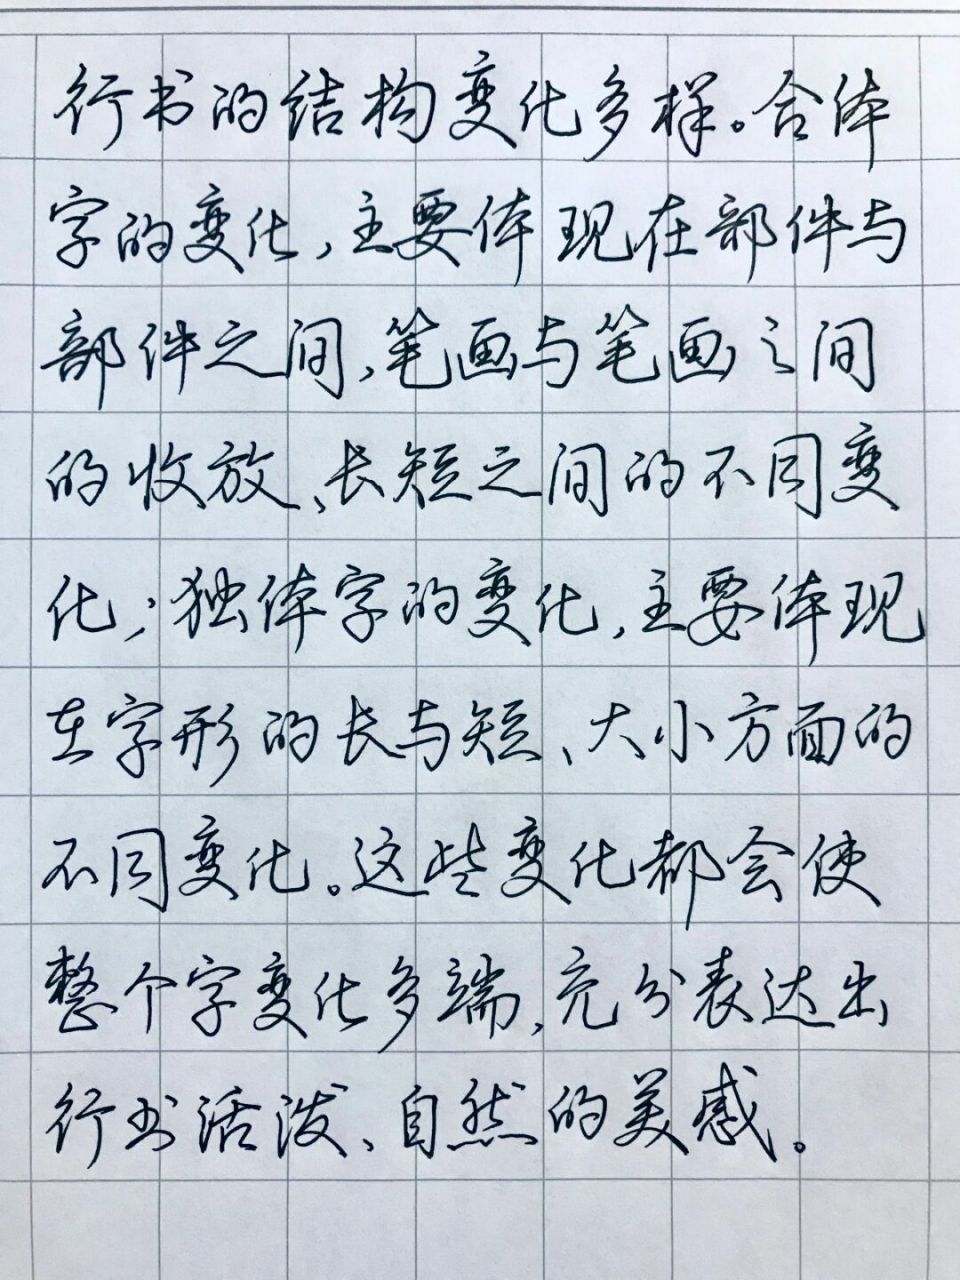 行书的结构变化多样。合体
字的变化,主要体现在部件与
部件之间,笔画与笔画之间
的收放、长短之间的不同变
化;独体字的变化,主要体现
在字形的长与短、大小方面的
不同变化。这些变化都会使
整个字变化多端,充分表达出
行书活泼、自然的美感。